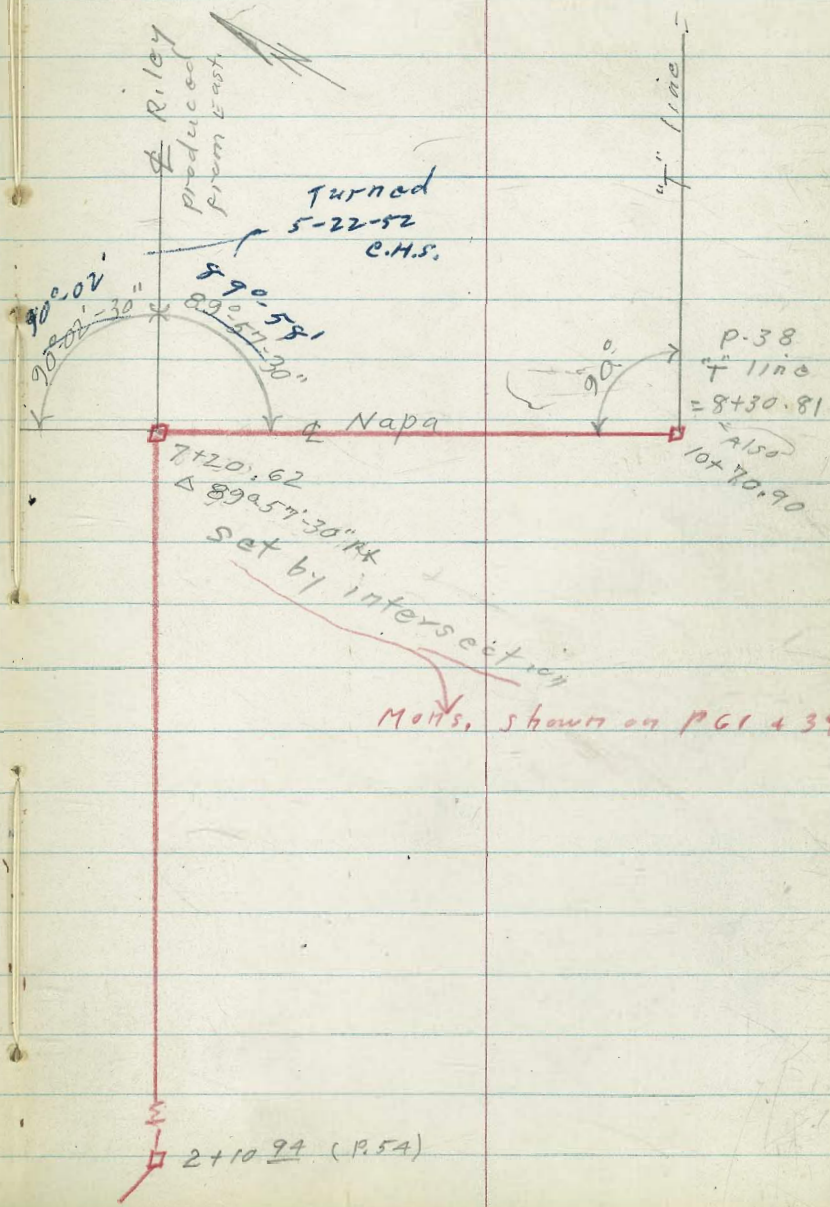 ℄ Riley
produced
from East.
"T" line
Turned
5-22-52
C.H.S.
90°-02'
90°-02'-30"
89°-58'
89°-57'-30"
90°
P.38
"T" line
= 8+30.81
Also
10+70.90
℄ Napa
7+20.62
Δ 89°57'-30" Rt
set by intersection
Mons. shown on P61 & 38
2+10 94 (P.54)